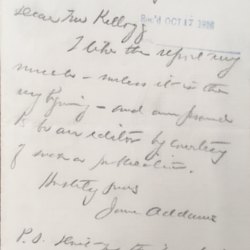 Dear Mr Kellogg
Rec'd OCT 17 19
I like the report very
much - unless it is the
typing - and am pleased
to be an editor by courtesy
of such a publication.
Hastily yours
Jane Addams
P.S.